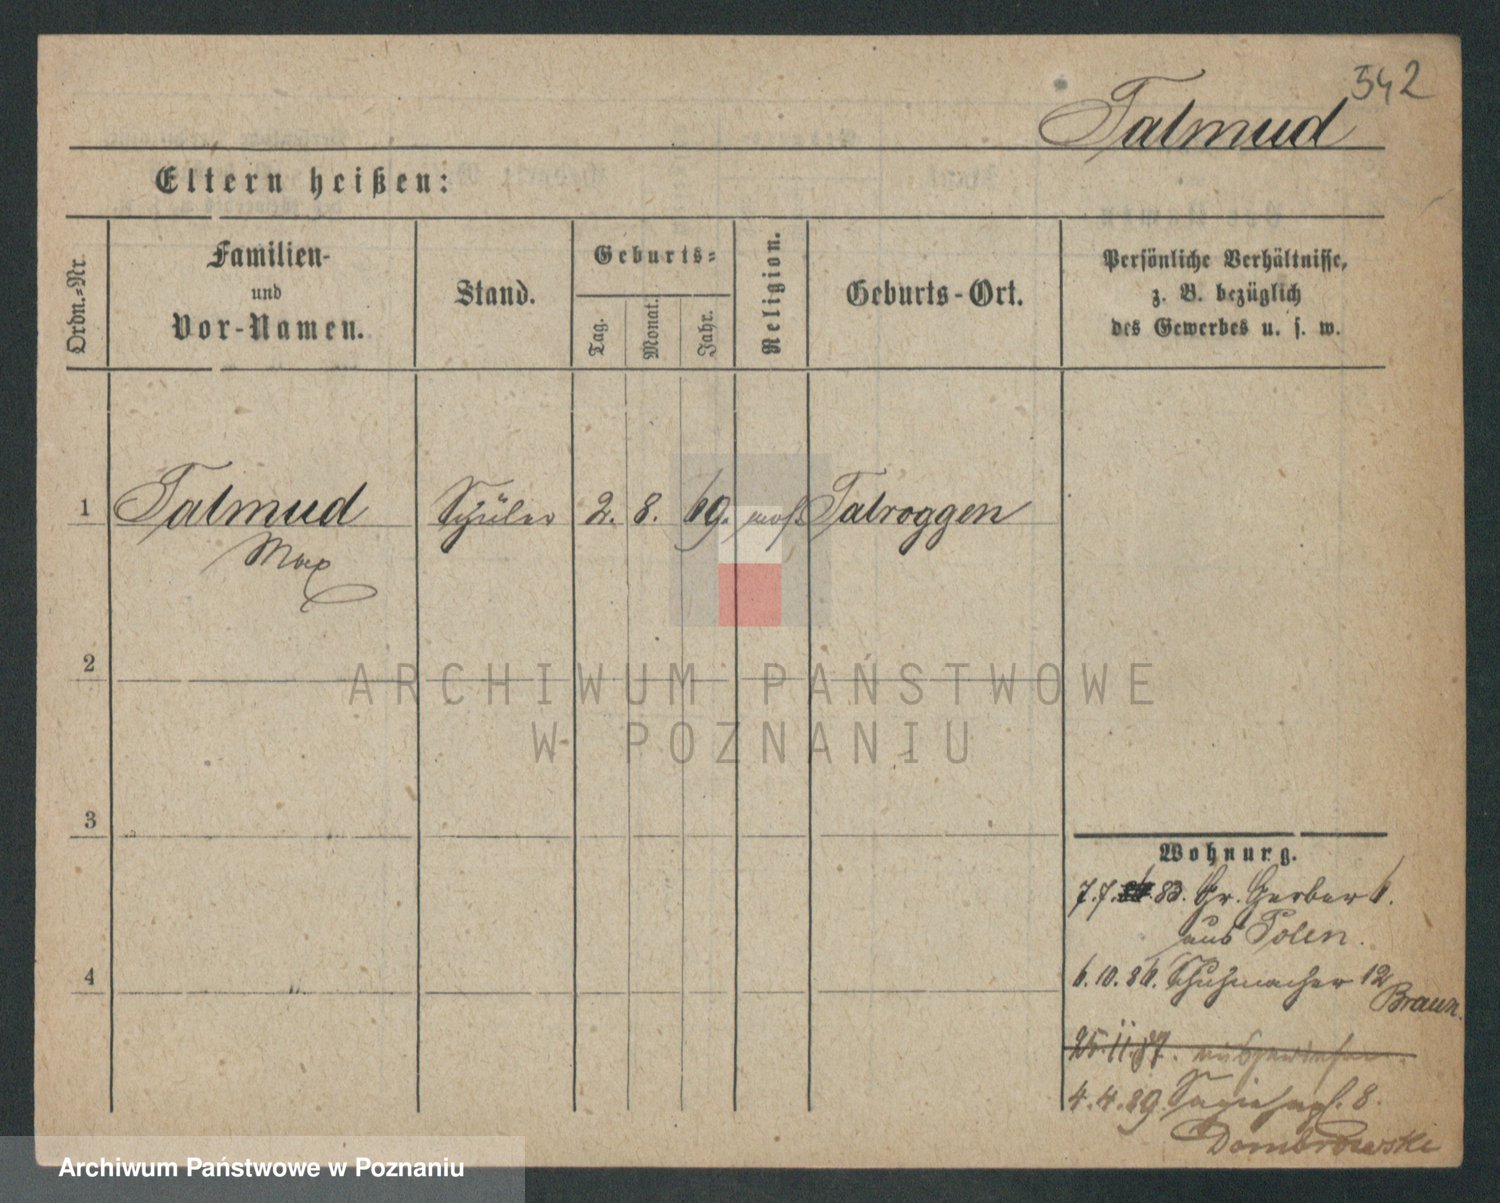 542
Talmud
Eltern heißen:
Ordn.-Nr.
Familien-
und
Vor-Namen.
Stand.
Geburts-
Tag.
Monat.
Jahr.
Religion.
Geburts-Ort.
Persönliche Verhältnisse,
z. B. bezüglich
des Gewerbes u. s. w.
1 Talmud Schüler 2. 8. 69. mos. Talroggen
Max
2
ARCHIWUM PAŃSTWOWE
W POZNANIU
3
Wohnung.
7.7. 83. Gr. Gerber 6.
aus Polen.
4
6.10.86. Schuhmacher 12
Braun.
25.11.87. ausgewiesen.
4.4.89. 8.
Dombrowski
Archiwum Państwowe w Poznaniu